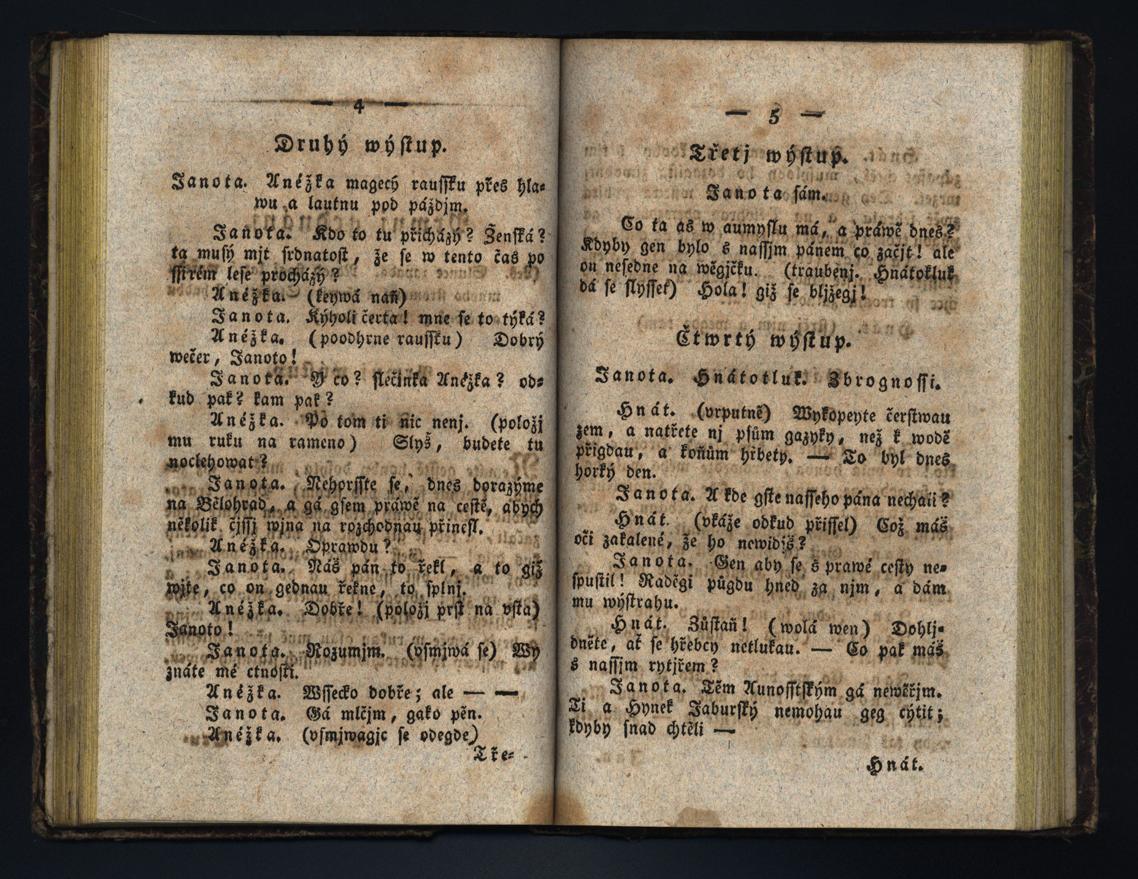 — 4 —
Druhý wýstup.
Janota. Anéžka magecý raussku přes hla-
wu a lautnu pod páždjm.
Janota. Kdo to tu přicházý? Ženská?
ta musý mjt srdnatost, že se w tento čas po
ssirém lese procházý?
Anéžka. (keywá naň)
Janota. Kýholi čerta! mne se to týká?
Anéžka. (poodhrne raussku) Dobrý
wečer, Janoto!
Janota. Y co? slečinka Anéžka? od-
kud pak? kam pak?
Anéžka. Po tom ti nic nenj. (položj
mu ruku na rameno) Slyš, budete tu
noclehowat?
Janota. Nehorsste se, dnes dorazýme
na Bělohrad, a gá gsem práwě na cestě, abych
několik čjssj wjna na rozchodnau přinesl.
Anéžka. Oprawdu?
Janota. Náš pán to řekl, a to giž
wjte, co on gednau řekne, to splnj.
Anéžka. Dobře! (položj prst na vsta)
Janoto!
Janota. Rozumjm. (vsmjwá se) Wy
znáte mé ctnosti.
Anéžka. Wssecko dobře; ale — —
Janota. Gá mlčjm, gako pěn.
Anéžka. (vsmjwagjc se odegde)
Tře-
— 5 —
Třetj wýstup.
Janota sám.
Co ta as w aumyslu má, a práwě dnes?
Kdyby gen bylo s nassjm pánem co začjt! ale
on nesedne na wěgjčku. (traubenj. Hnátotluk
dá se slysset) Hola! giž se bljžegj!
Čtwrtý wýstup.
Janota. Hnátotluk. Zbrognossi.
Hnát. (vrputně) Wykopeyte čerstwau
zem, a natřete nj psům gazyky, než k wodě
přigdau, a koňům hřbety. — To byl dnes
horký den.
Janota. A kde gste nasseho pána nechali?
Hnát. (vkáže odkud přissel) Což máš
oči zakalené, že ho newidjš?
Janota. Gen aby se s prawé cesty ne-
spustil! Raděgi půgdu hned za njm, a dám
mu wýstrahu.
Hnát. Zůstaň! (wolá wen) Dohlj-
dněte, ať se hřebcy netlukau. — Co pak máš
s nassjm rytjřem?
Janota. Těm Aunosstským gá newěřjm.
Ti a Hynek Jaburský nemohau geg cýtit;
kdyby snad chtěli —
Hnát.